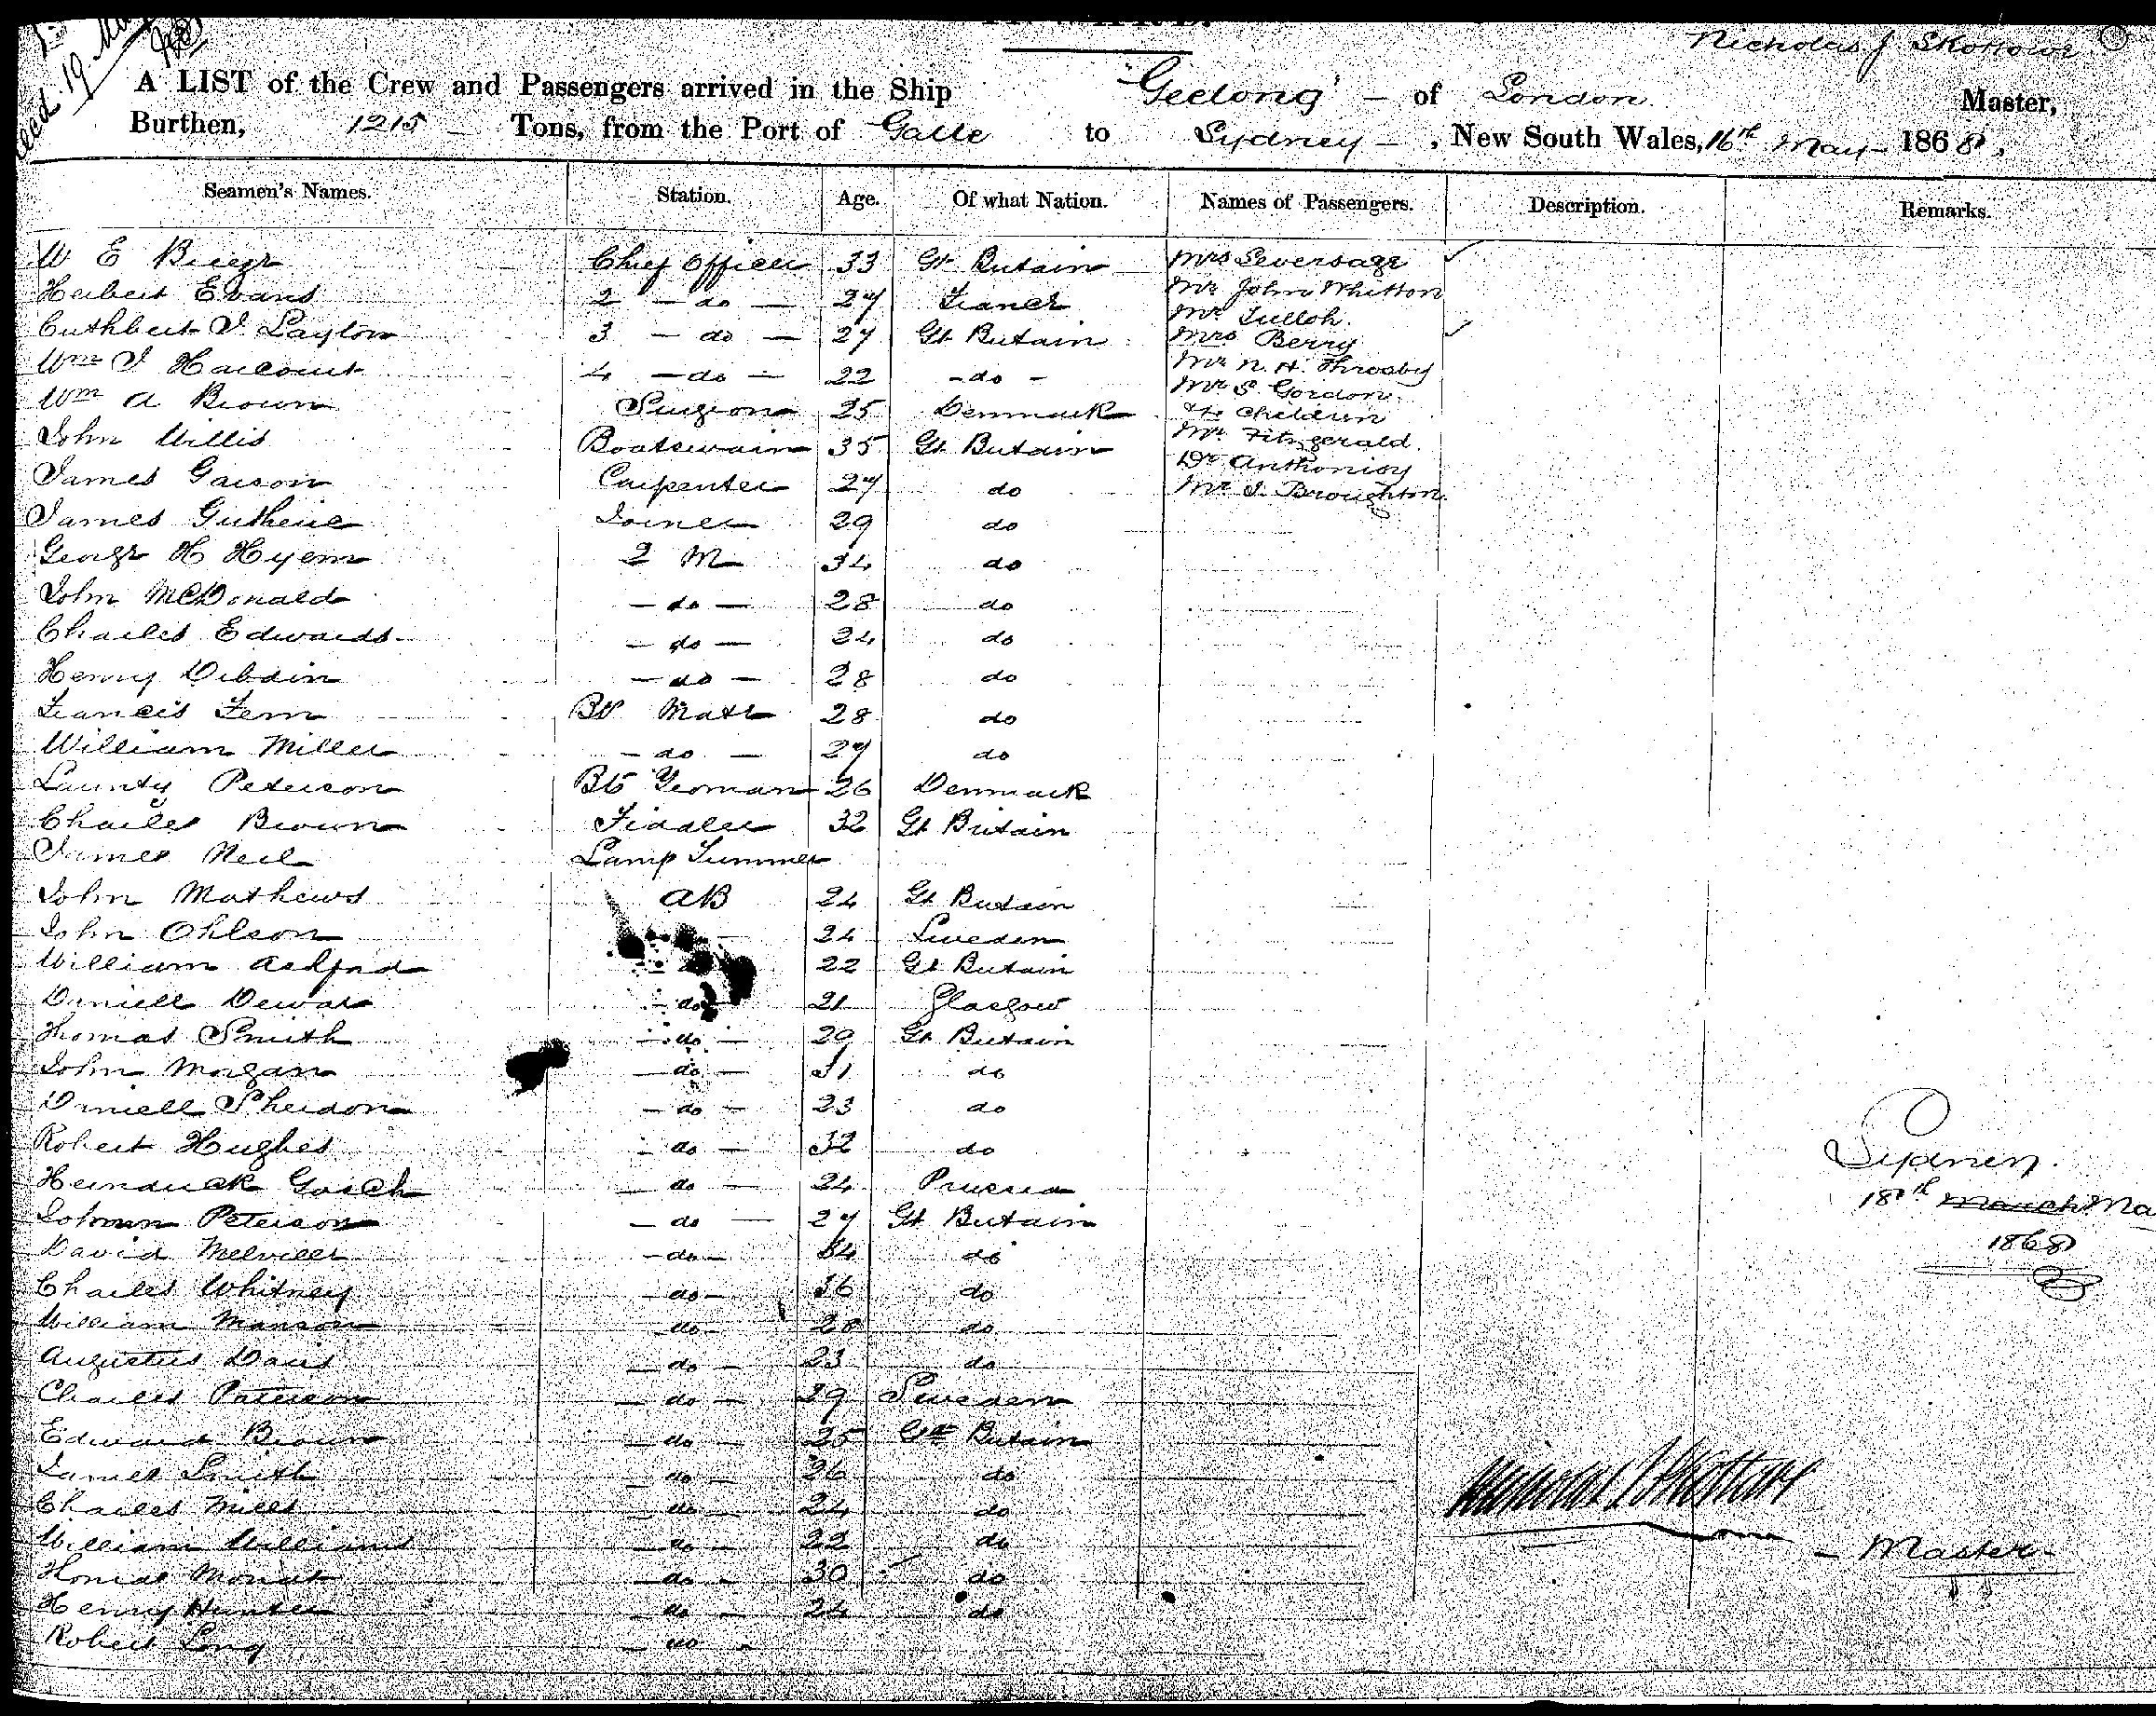 INWARD.
Nicholas J Skottowe
A LIST of the Crew and Passengers arrived in the Ship "Geelong" — of London Master,
Burthen, 1215 Tons, from the Port of Galle to Sydney — , New South Wales, 16th May — 1868.
Seamen's Names. Station. Age. Of what Nation. Names of Passengers. Description. Remarks.
W E Chief Officer 33 Gt Britain Mrs Leversage
Herbert Evans 2 — do — 27 France Mr John Whitton
Mr Tulloh
Cuthbert I Layton 3 — do — 27 Gt Britain Mrs Berry
Wm I Harcourt 4 — do — 22 - do - Mr N. H. Throsby
Mr S. Gordon
Wm A Brown Surgeon 25 Denmark Children
John Willis Boatswain 35 Gt Britain Mr Fitzgerald
Dr
James Garson Carpenter 27 do Mr I. Broughton
James Guthrie Joiner 29 do
George H Hyem 2 M 34 do
John McDonald — do — 28 do
Charles Edwards — do — 24 do
Henry Dibdin — do — 28 do
Francis Fern Bts Mate 28 do
William Miller — do — 27 do
Launty Peterson Bts Yeoman 26 Denmark
Charles Brown Fiddler 32 Gt Britain
James Neil Lamp Trimmer
John Mathews AB 24 Gt Britain
John Ohlson 24 Sweden
William Ashford 22 Gt Britain
Daniell Dewar — do — 21 Glasgow
Thomas Smith — do — 29 Gt Britain
John Morgan — do — 31 do
Daniell Sheridon — do — 23 do
Robert Hughes — do — 32 do
Heindrick — do — 24 Prussia
Peterson — do — 27 Gt Britain
David Melville — do — 34 do
Charles Whitney — do — 36 do
William Manson do 28 do
Augustus Davis — do — 23 do
Charles Paterson — do — 29 Sweden
Edward Brown — do — 25 Gt Britain
James Smith — do — 26 do
Charles Mills — do — 24 do
William Williams — do — 22 do
Thomas — do — 30 do
Henry Hunter — do — 24 do
Robert Long — do —
Sydney
18th March
1868
— Master —